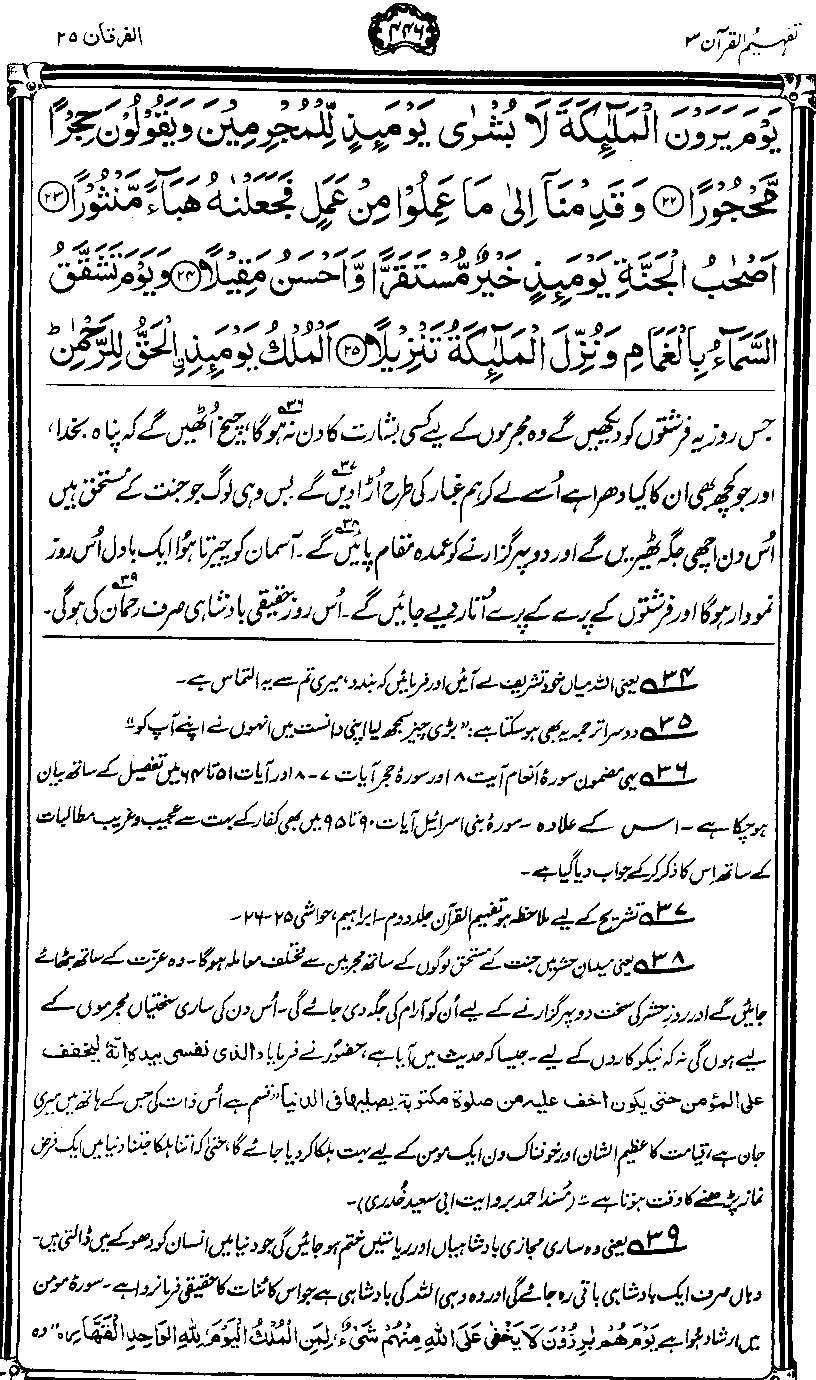 تفہیم القرآن ۳
۴۴۶
الفرقان ۲۵
يَوْمَ يَرَوْنَ الْمَلٰٓئِكَةَ لَا بُشْرٰى يَوْمَئِذٍ لِّلْمُجْرِمِيْنَ وَيَقُوْلُوْنَ حِجْرًا
مَّحْجُوْرًا ۝۲۲ وَقَدِمْنَآ اِلٰى مَا عَمِلُوْا مِنْ عَمَلٍ فَجَعَلْنٰهُ هَبَآءً مَّنْثُوْرًا ۝۲۳
اَصْحٰبُ الْجَنَّةِ يَوْمَئِذٍ خَيْرٌ مُّسْتَقَرًّا وَّاَحْسَنُ مَقِيْلًا ۝۲۴ وَيَوْمَ تَشَقَّقُ
السَّمَآءُ بِالْغَمَامِ وَنُزِّلَ الْمَلٰٓئِكَةُ تَنْزِيْلًا ۝۲۵ اَلْمُلْكُ يَوْمَئِذِ ِۨالْحَقُّ لِلرَّحْمٰنِ ؕ
جس روز یہ فرشتوں کو دیکھیں گے وہ مجرموں کے لیے کسی بشارت کا دن نہ ہوگا۳۶، چیخ اُٹھیں گے کہ پناہ بخدا،
اور جو کچھ بھی ان کا کیا دھرا ہے اُسے لے کر ہم غبار کی طرح اُڑا دیں۳۷ گے۔ بس وہی لوگ جو جنت کے مستحق ہیں
اُس دن اچھی جگہ ٹھیریں گے اور دوپہر گزارنے کو عمدہ مقام پائیں۳۸ گے۔ آسمان کو چیرتا ہوا ایک بادل اُس روز
نمودار ہوگا اور فرشتوں کے پرے کے پرے اُتار دیے جائیں گے۔ اُس روز حقیقی بادشاہی صرف رحمان کی ہوگی۳۹۔
۳۴ یعنی اللہ میاں خود تشریف لے آئیں اور فرمائیں کہ بندو، میری تم سے یہ التماس ہے۔
۳۵ دوسرا ترجمہ یہ بھی ہو سکتا ہے: ”بڑی چیز سمجھ لیا اپنی دانست میں انہوں نے اپنے آپ کو“
۳۶ یہی مضمون سورۂ انعام آیت ۸ اور سورۂ حجر آیات ۷-۸ اور آیات ۵۱ تا ۶۴ میں تفصیل کے ساتھ بیان
ہوچکا ہے۔ اس کے علاوہ۔ سورۂ بنی اسرائیل آیات ۹۰ تا ۹۵ میں بھی کفار کے بہت سے عجیب و غریب مطالبات
کے ساتھ اِس کا ذکر کرکے جواب دیا گیا ہے۔
۳۷ تشریح کے لیے ملاحظہ ہو تفہیم القرآن جلد دوم۔ ابراہیم، حواشی ۲۵-۲۶۔
۳۸ یعنی میدانِ حشر میں جنت کے مستحق لوگوں کے ساتھ مجرمین سے مختلف معاملہ ہوگا۔ وہ عزت کے ساتھ بٹھائے
جائیں گے اور روزِ حشر کی سخت دوپہر گزارنے کے لیے اُن کو آرام کی جگہ دی جائے گی۔ اُس دن کی ساری سختیاں مجرموں کے
لیے ہوں گی نہ کہ نیکوکاروں کے لیے۔ جیسا کہ حدیث میں آیا ہے، حضورؐ نے فرمایا والذی نفسی بیدہ انہ لیخفف
علی المؤمن حتی یکون اخف علیہ من صلوٰۃ مکتوبۃ یصلیہا فی الدنیا ”قسم ہے اُس ذات کی جس کے ہاتھ میں میری
جان ہے، قیامت کا عظیم الشان اور خوفناک دن ایک مومن کے لیے بہت ہلکا کر دیا جائے گا، حتیٰ کہ اتنا ہلکا جتنا دنیا میں ایک فرض
نماز پڑھنے کا وقت ہوتا ہے“ (مُسند احمد بروایت ابی سعید خُدری)۔
۳۹ یعنی وہ ساری مجازی بادشاہیاں اور ریاستیں ختم ہو جائیں گی جو دنیا میں انسان کو دھوکے میں ڈالتی ہیں۔
وہاں صرف ایک بادشاہی باقی رہ جائے گی اور وہ وہی اللہ کی بادشاہی ہے جو اس کائنات کا حقیقی فرمانروا ہے۔ سورۂ مومن
میں ارشاد ہوا ہے يَوْمَ هُمْ بٰرِزُوْنَ لَا يَخْفٰى عَلَى اللّٰهِ مِنْهُمْ شَيْءٌ، لِمَنِ الْمُلْكُ الْيَوْمَ لِلّٰهِ الْوَاحِدِ الْقَهَّارِ۝ ”وہ